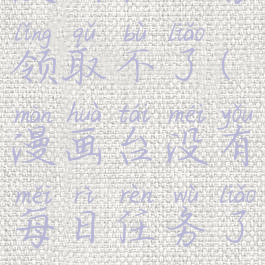 lǐng qǔ bù liǎo
领取不了(
màn huà tái méi yǒu
漫画台没有
měi rì rèn wù liǎo
每日任务了